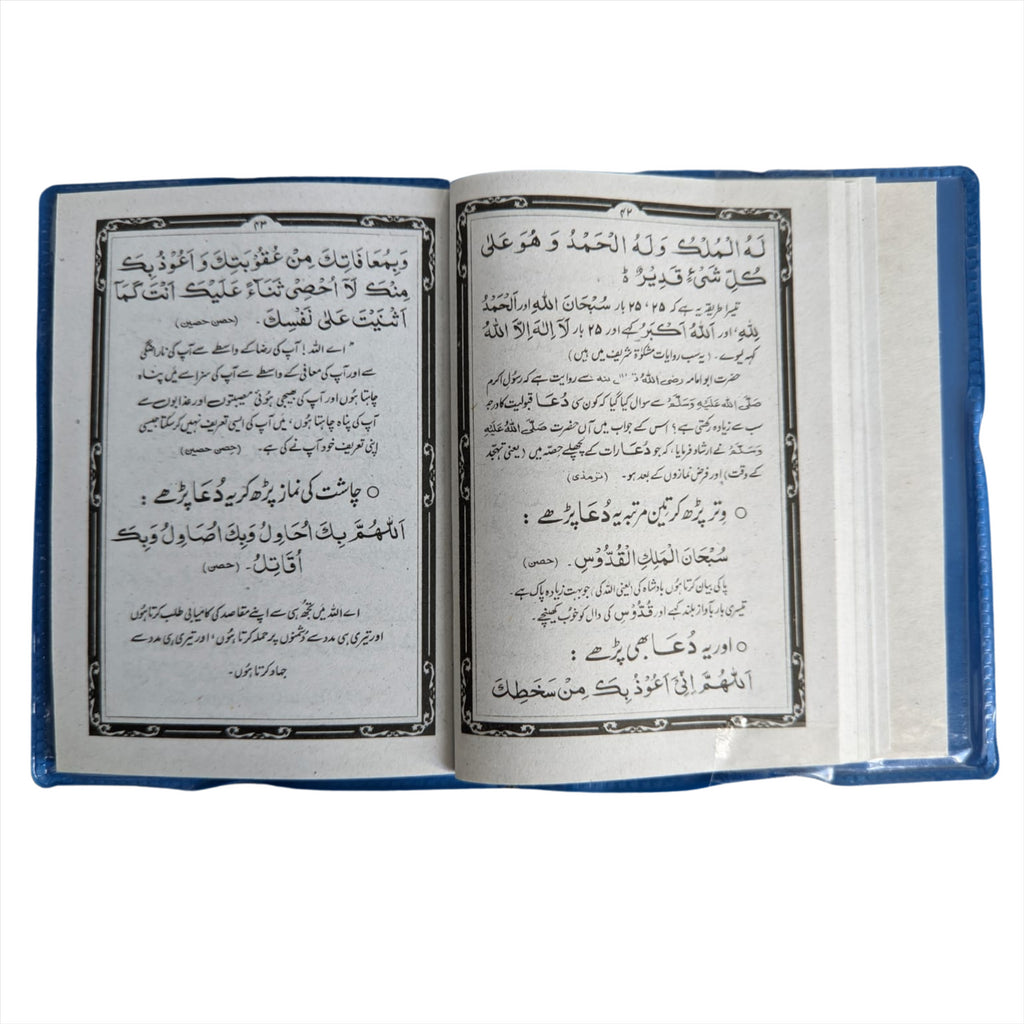 ۴۲
لَهُ الْمُلْكُ وَلَهُ الْحَمْدُ وَ هُوَ عَلٰى
كُلِّ شَیْءٍ قَدِیْرٌ ط
تیسرا طریقہ یہ ہے کہ ۲۵، ۲۵ بار سُبْحَانَ اللهِ اور اَلْحَمْدُ
لِلّٰهِ، اور اَللّٰهُ اَکْبَرُ کہے اور ۲۵ بار لَا اِلٰهَ اِلَّا اللّٰهُ
کہہ لیوے۔ (یہ سب روایات مشکوٰۃ شریف میں ہیں)
حضرت ابو امامہ رضی اللهُ سے روایت ہے کہ رسول اکرم
صَلَّی اللهُ عَلَیْهِ وَسَلَّمْ سے سوال کیا گیا کہ کون سی دُعَا قبولیت کا درجہ
سب سے زیادہ رکھتی ہے؟ اس کے جواب میں آں حضرت صَلَّی اللهُ عَلَیْهِ
وَسَلَّمْ نے ارشاد فرمایا، کہ جو دُعَا رات کے پچھلے حصّہ میں (یعنی تہجّد
کے وقت) اور فرض نمازوں کے بعد ہو۔ (ترمذی)
○ وتر پڑھ کر تین مرتبہ یہ دُعَا پڑھے :
سُبْحَانَ الْمَلِكِ الْقُدُّوْسِ۔ (حصن)
پاکی بیان کرتا ہوں بادشاہ کی (یعنی اللہ کی) جو بہت زیادہ پاک ہے۔
تیسری بار بآواز بلند کہے اور قُدُّوْس کی دال کو خوب کھینچے۔
○ اور یہ دُعَا بھی پڑھے :
اَللّٰهُمَّ اِنِّیْ اَعُوْذُ بِكَ مِنْ سَخَطِكَ
۴۳
وَبِمُعَافَاتِكَ مِنْ عُقُوْبَتِكَ وَ اَعُوْذُ بِكَ
مِنْكَ لَا اُحْصِیْ ثَنَآءً عَلَیْكَ اَنْتَ کَمَا
اَثْنَیْتَ عَلٰى نَفْسِكَ۔ (حصن حصین)
اے اللہ! آپ کی رضا کے واسطے سے آپ کی ناراضگی
سے اور آپ کی معافی کے واسطے سے آپ کی سزا سے میں پناہ
چاہتا ہوں اور آپ کی بھیجی ہوئی مصیبتوں اور عذابوں سے
آپ کی پناہ چاہتا ہوں، میں آپ کی ایسی تعریف نہیں کر سکتا جیسی
اپنی تعریف خود آپ نے کی ہے۔ (حصن حصین)
○ چاشت کی نماز پڑھ کر یہ دُعَا پڑھے :
اَللّٰهُمَّ بِكَ اُحَاوِلُ وَبِكَ اُصَاوِلُ وَبِكَ
اُقَاتِلُ۔ (حصن)
اے اللہ میں تجھ ہی سے اپنے مقاصد کی کامیابی طلب کرتا ہوں
اور تیری ہی مدد سے دشمنوں پر حملہ کرتا ہوں، اور تیری ہی مدد سے
جہاد کرتا ہوں۔